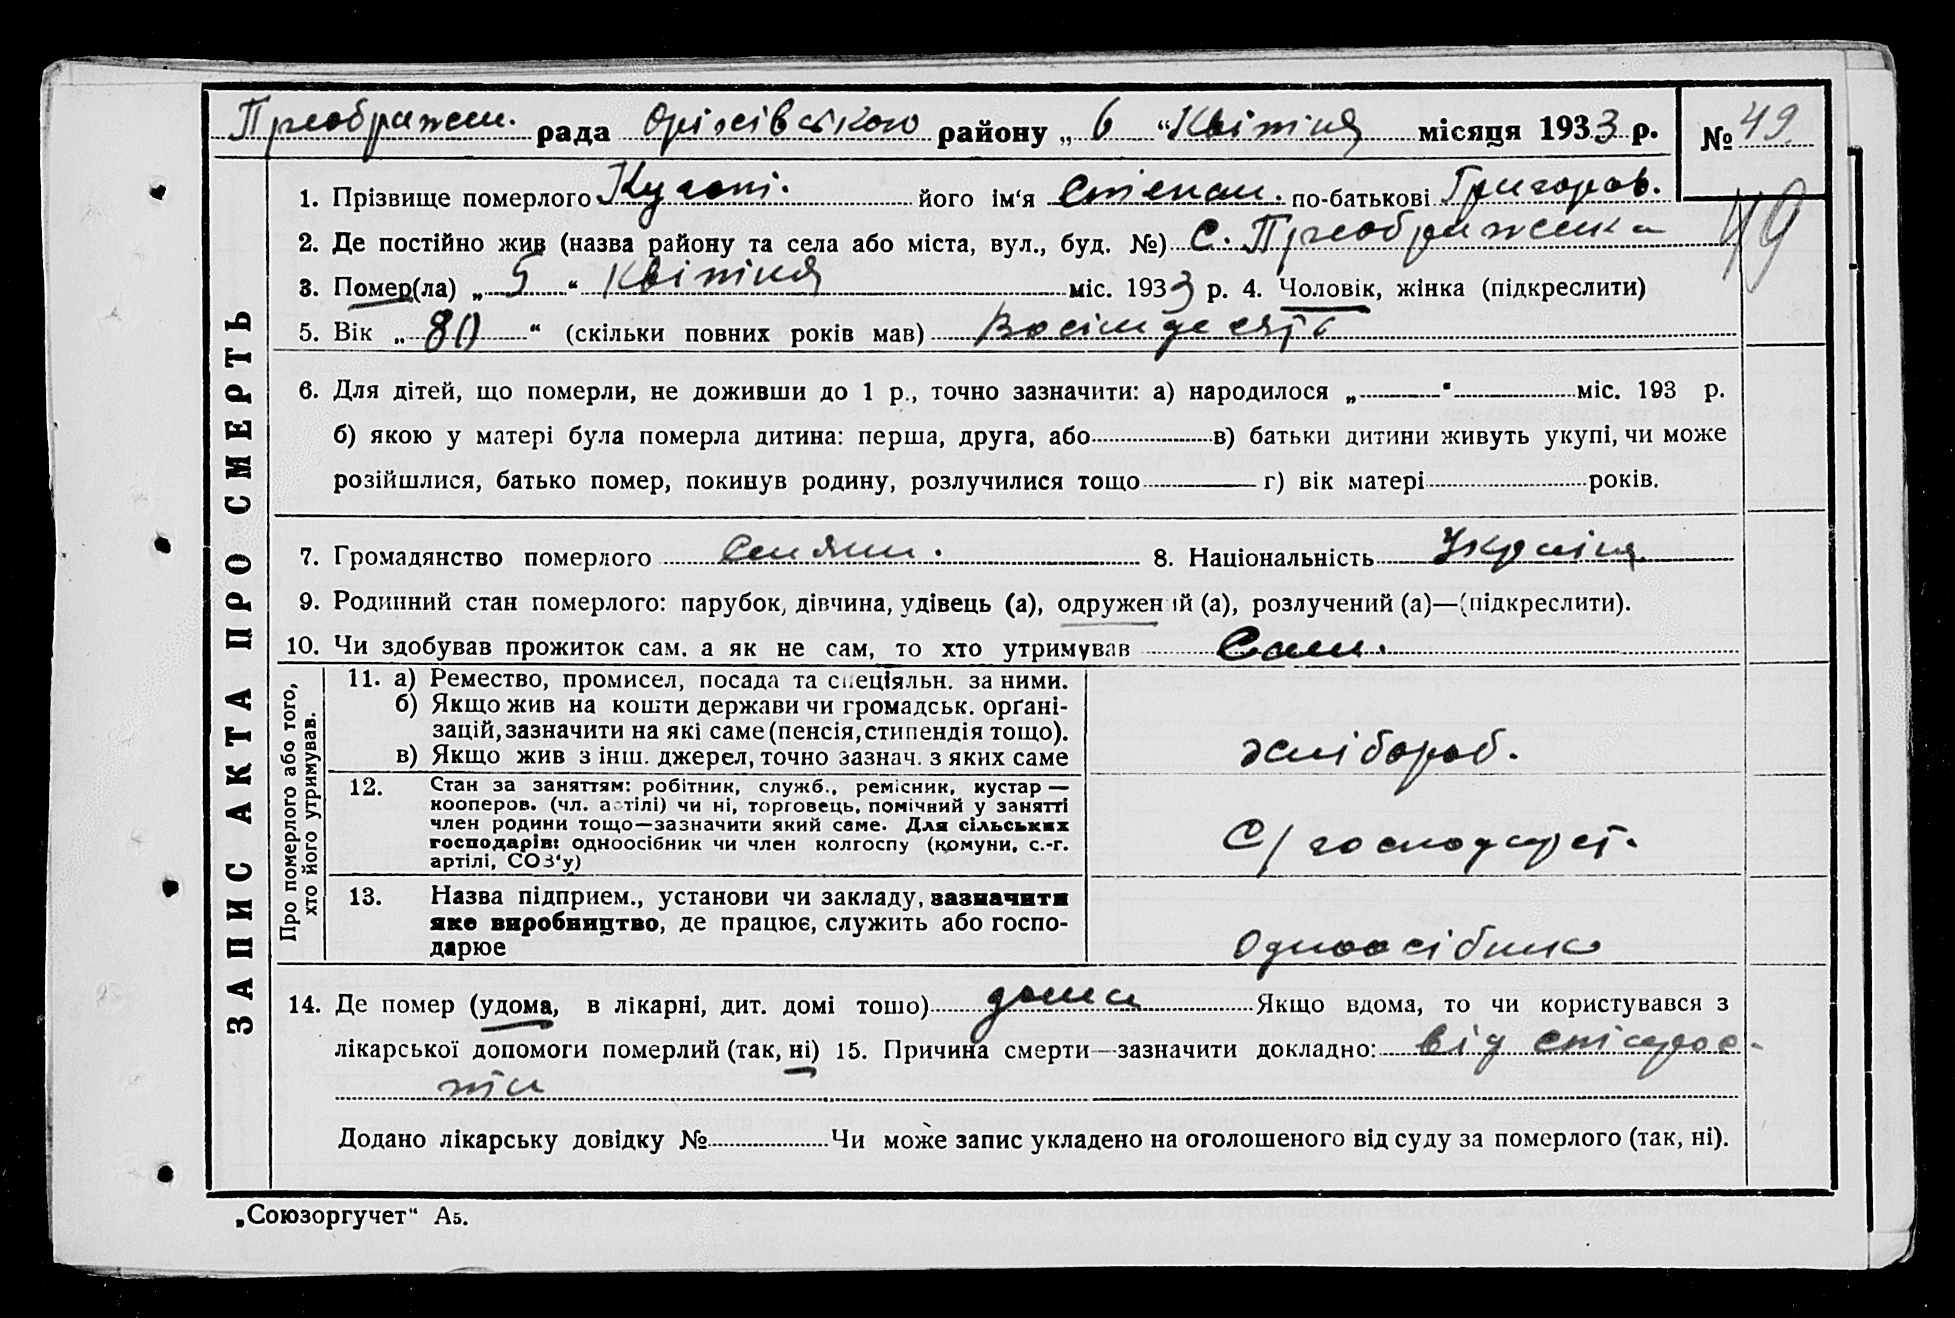 Преображен. рада Оріхівського району „ 6 “ Квітня місяця 1933 р.
№ 49.
49
1. Прізвище померлого його ім‘я Степан. по-батькові Григоров.
2. Де постійно жив (назва району та села або міста, вул., буд. №) С. Преображенка
3. Помер(ла) „ 5 “ Квітня міс. 1933 р. 4. Чоловік, жінка (підкреслити)
5. Вік „ 80 “ (скільки повних років мав) Восімдесять
6. Для дітей, що померли, не доживши до 1 р., точно зазначити: а) народилося „ “ міс. 193 р.
б) якою у матері була померла дитина: перша, друга, або в) батьки дитини живуть укупі, чи може
розійшлися, батько помер, покинув родину, розлучилися тощо г) вік матері років.
7. Громадянство померлого 8. Національність Україн
9. Родинний стан померлого: парубок, дівчина, удівець (а), одружений (а), розлучений (а)—(підкреслити).
10. Чи здобував прожиток сам. а як не сам, то хто утримував Сам.
11. а) Ремество, промисел, посада та спеціяльн. за ними.
б) Якщо жив на кошти держави чи громадськ. орґані-
зацій, зазначити на які саме (пенсія, стипендія тощо).
в) Якщо жив з інш. джерел, точно зазнач. з яких саме
хлібороб.
12. Стан за заняттям: робітник, служб., ремісник, кустар —
кооперов. (чл. артілі) чи ні, торговець, помічний у занятті
член родини тощо—зазначити який саме. Для сільських
господарів: одноосібник чи член колгоспу (комуни, с.-г.
артілі, СОЗ‘у)
С/господарст.
13. Назва підприєм., установи чи закладу, зазначити
яке виробництво, де працює, служить або госпо-
дарює
Одноосібник
14. Де помер (удома, в лікарні, дит. домі тошо) дома Якщо вдома, то чи користувався з
лікарської допомоги померлий (так, ні) 15. Причина смерти—зазначити докладно: від старос-
ти
Додано лікарську довідку № Чи може запис укладено на оголошеного від суду за померлого (так, ні).
ЗАПИС АКТА ПРО СМЕРТЬ
Про померлого або того,
хто його утримував.
„Союзоргучет“ А5.